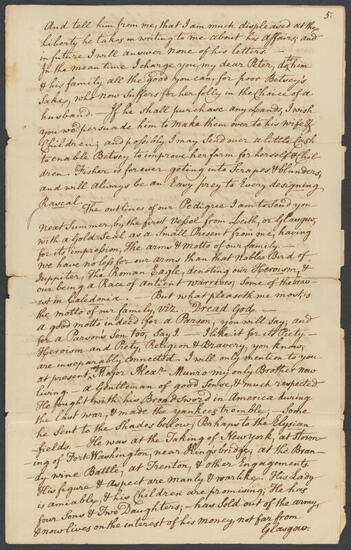 5.
And tell him from me, that I am much displeased at the
liberty he takes in writing to me about his affairs, and
in future I will answer none of his letters. —
In the mean time I charge you, my dear Peter, do him
& his family all the good you can, for poor Betsey's
Sake, who now Suffers for her folly in the Choice of a
husband. If he shall purchase any Lands, I wish
you wod persuade him to make them over to his Wife &
Children; and possibly I may Send over a little Cash
to enable Betsey to improve her farm for herself & Chil-
dren. Fisher is forever going into Scrapes & blunders,
and will always be an Easy prey to Every designing
Rascal.
The outlines of our Pedigree I am to Send you
next Summer, by the first Vessel from Leith, or Glasgow,
with a Gold Seal as a Small Present from me, having
for its impression, the arms & motto of our family. —
We have no less for our arms than that nobles Bird of
Juppiter, the Roman Eagle, denoting our Heroism, &
our being a Race of antient warriors, Some of the brav-
est in Caledonia. But what pleaseth me most, is
the motto of our family, Viz. Dread God. —
a good motto indeed for a Parson, you will say; and
for a Parsons Son too, Say I. I like it for its Piety —
Heroism and Piety, Religion & Bravery, you know,
are inseparably connected. I will only mention to you
at present, Major Alexr. Munro my only Brother now
living — a Gentleman of good Sense, & much respected
He fought with his Broadsword in America during
the last war, & made the yankees tremble; Some
he sent to the Shades below, Perhaps to the Elysian
fields. He was at the Taking of New York, at Storm-
ing of Fort Washington, near Kingsbridge, at the Bran-
dy wine Battle, at Trenton, & other Engagements.
His figure & aspect are manly & warlike. His Lady
is amiably, & his Children are promising; He has
four Sons & Two Daughters; — has Sold out of the army,
& now lives on the interest of his money, not far from
Glasgow.